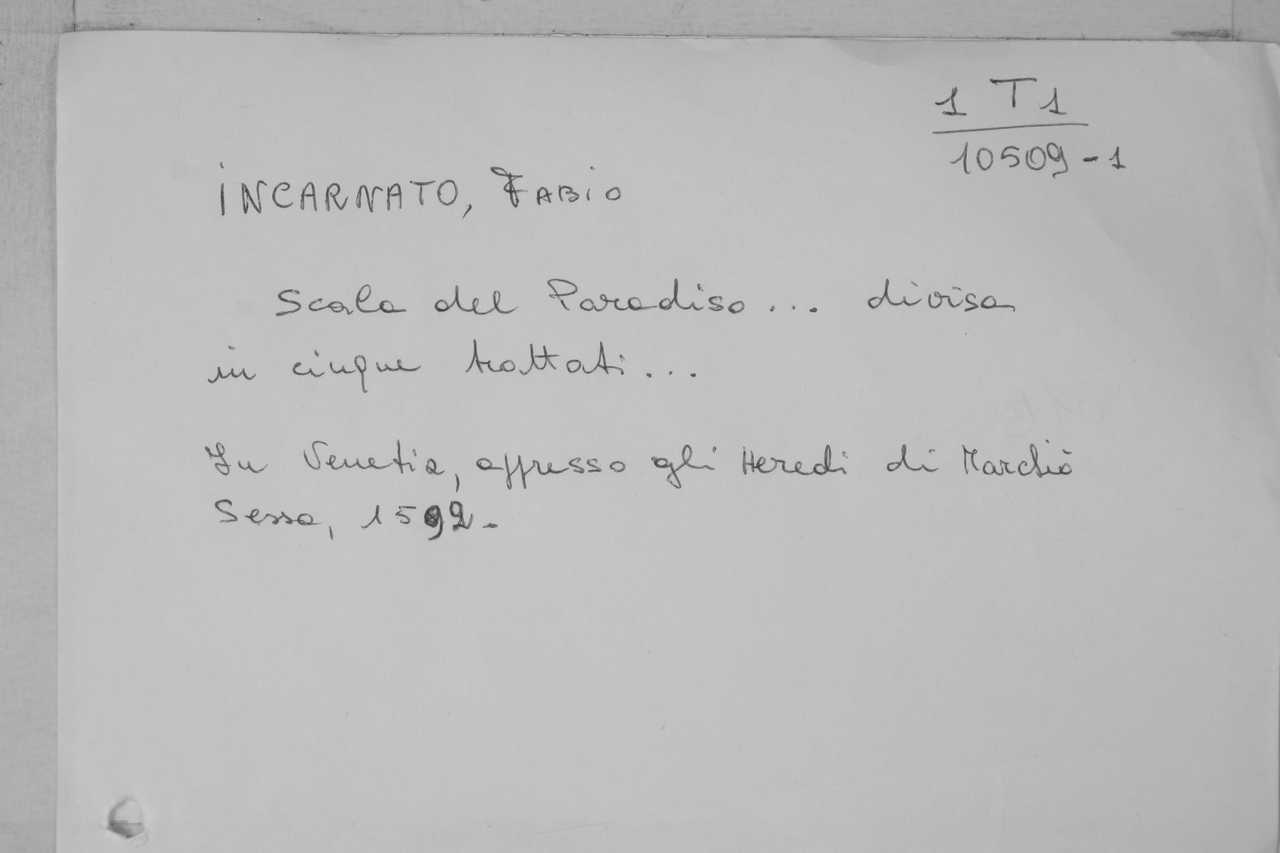 1 T 1
10509-1
INCARNATO, FABIO
Scala del Paradiso... divisa
in cinque trattati...
In Venetia, appresso gli Heredi di Marchiò
Sessa, 1592.